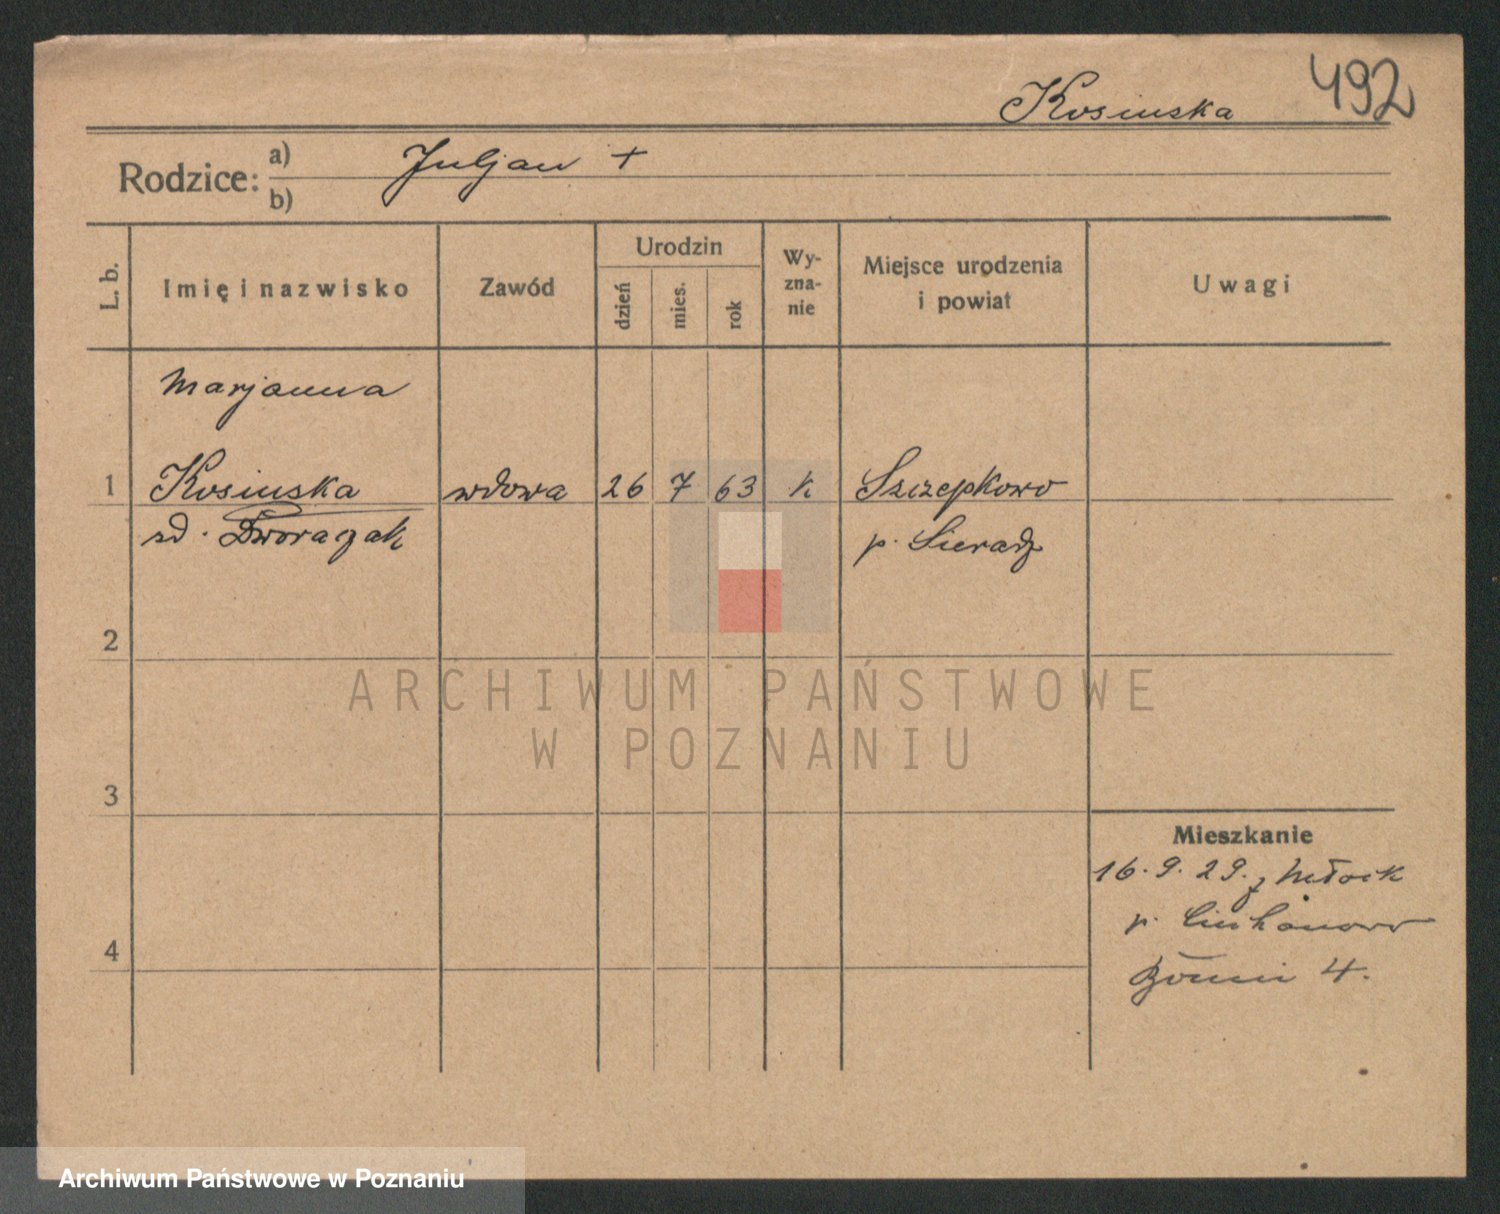 Kosinska 492
Rodzice:
a) Juljan +
b)
L. b.
Imię i nazwisko
Zawód
Urodzin
dzień
mies.
rok
Wy-
zna-
nie
Miejsce urodzenia
i powiat
Uwagi
Marjanna
1 Kosinska wdowa 26 7 63 k Szczepkowo
zd. Dworazak p. Sieradz
2
ARCHIWUM PAŃSTWOWE
W POZNANIU
3
Mieszkanie
16.9.29. z Młock
p. Ciechanowo
4
4.
Archiwum Państwowe w Poznaniu